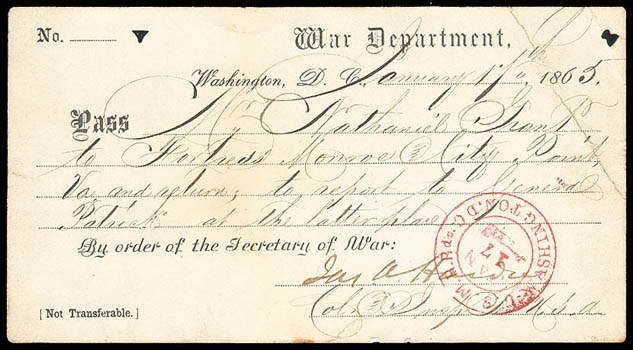 No.
War Department,
Washington, D. C., January 17th, 1865.
Pass Mr Nathaniel
to Fortress Monroe & City Point,
Va, and return; to report to General
Patrick at the latter place
By order of the Secretary of War:
Jas A Hardie
Col & Insp U.S.A
[Not Transferable.]
U.S. M. R.Rds. WASHINGTON, D.C.
JAN
17